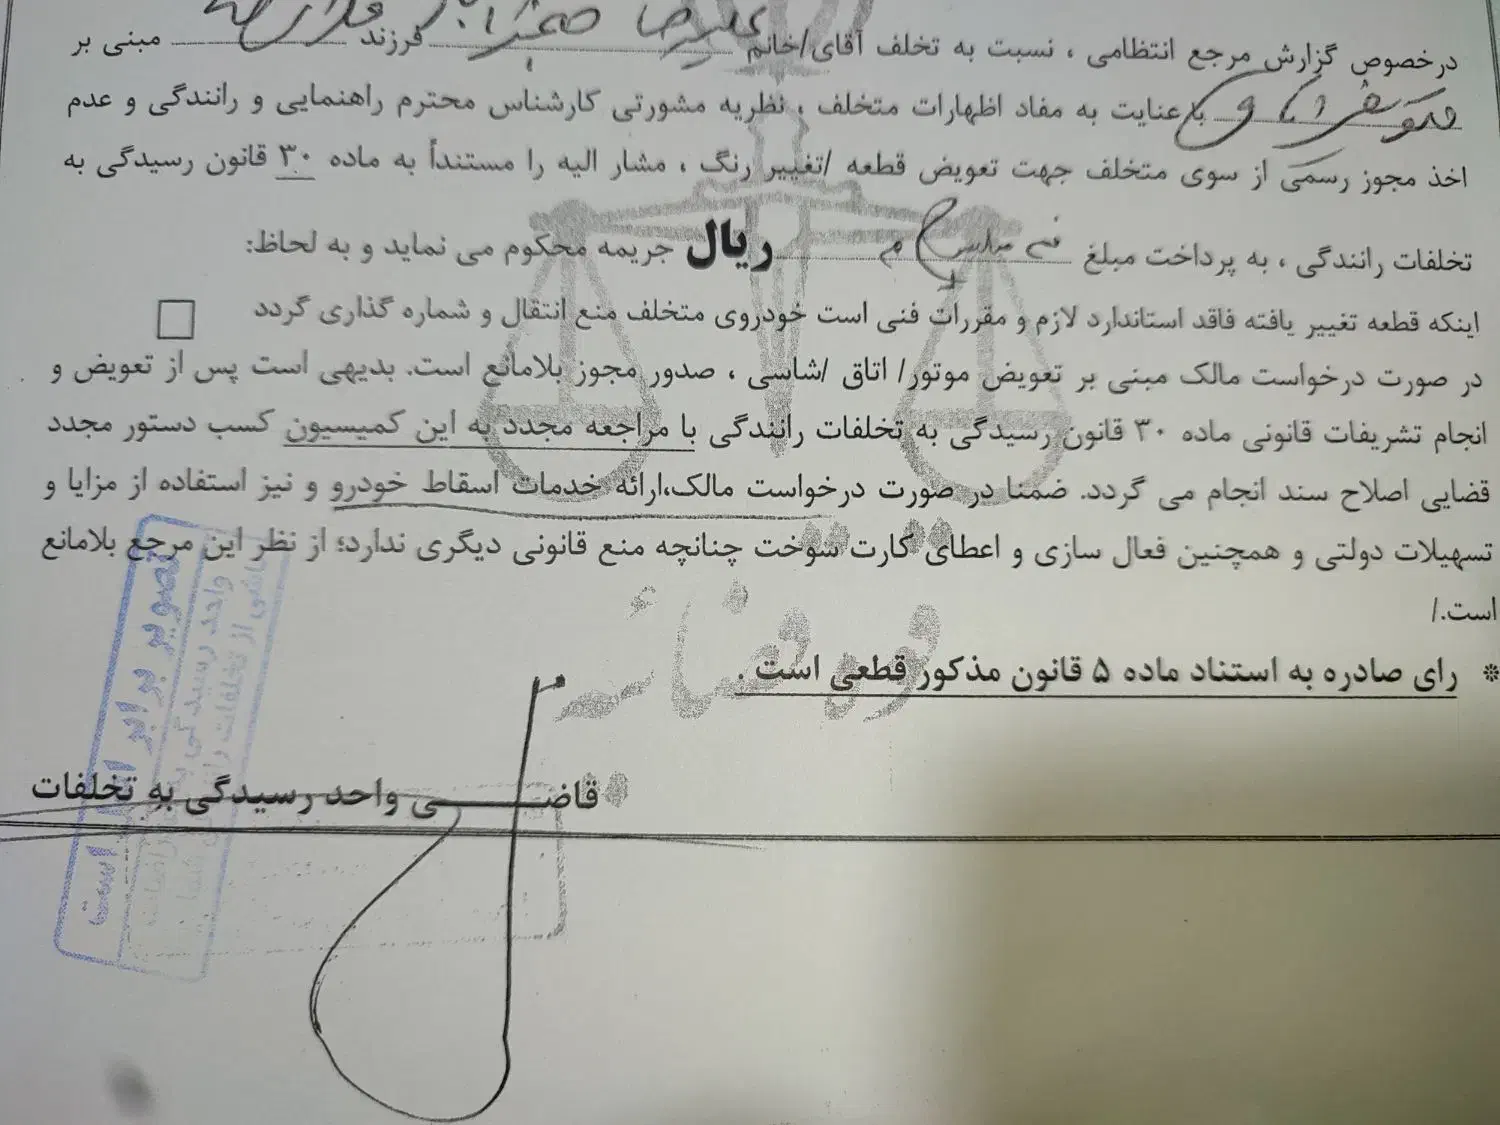 علیرضا
درخصوص گزارش مرجع انتظامی ، نسبت به تخلف آقای/خانم فرزند مبنی بر
با عنایت به مفاد اظهارات متخلف ، نظریه مشورتی کارشناس محترم راهنمایی و رانندگی و عدم
اخذ مجوز رسمی از سوی متخلف جهت تعویض قطعه /تغییر رنگ ، مشار الیه را مستنداً به ماده ۳۰ قانون رسیدگی به
تخلفات رانندگی ، به پرداخت مبلغ ریال جریمه محکوم می نماید و به لحاظ:
اینکه قطعه تغییر یافته فاقد استاندارد لازم و مقررات فنی است خودروی متخلف منع انتقال و شماره گذاری گردد
در صورت درخواست مالک مبنی بر تعویض موتور/ اتاق /شاسی ، صدور مجوز بلامانع است. بدیهی است پس از تعویض و
انجام تشریفات قانونی ماده ۳۰ قانون رسیدگی به تخلفات رانندگی با مراجعه مجدد به این کمیسیون کسب دستور مجدد
قضایی اصلاح سند انجام می گردد. ضمنا در صورت درخواست مالک،ارائه خدمات اسقاط خودرو و نیز استفاده از مزایا و
تسهیلات دولتی و همچنین فعال سازی و اعطای کارت سوخت چنانچه منع قانونی دیگری ندارد؛ از نظر این مرجع بلامانع
است./
* رای صادره به استناد ماده ۵ قانون مذکور قطعی است .
قوه قضائیه
قاضـــی واحد رسیدگی به تخلفات
تصویر برابر اصل است
واحد رسیدگی به